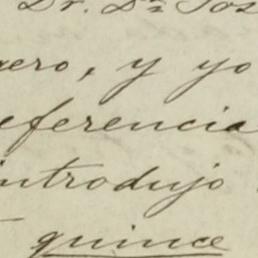 Dr. Dn Jos
ero, y yo
eferencia
introdujo
quince